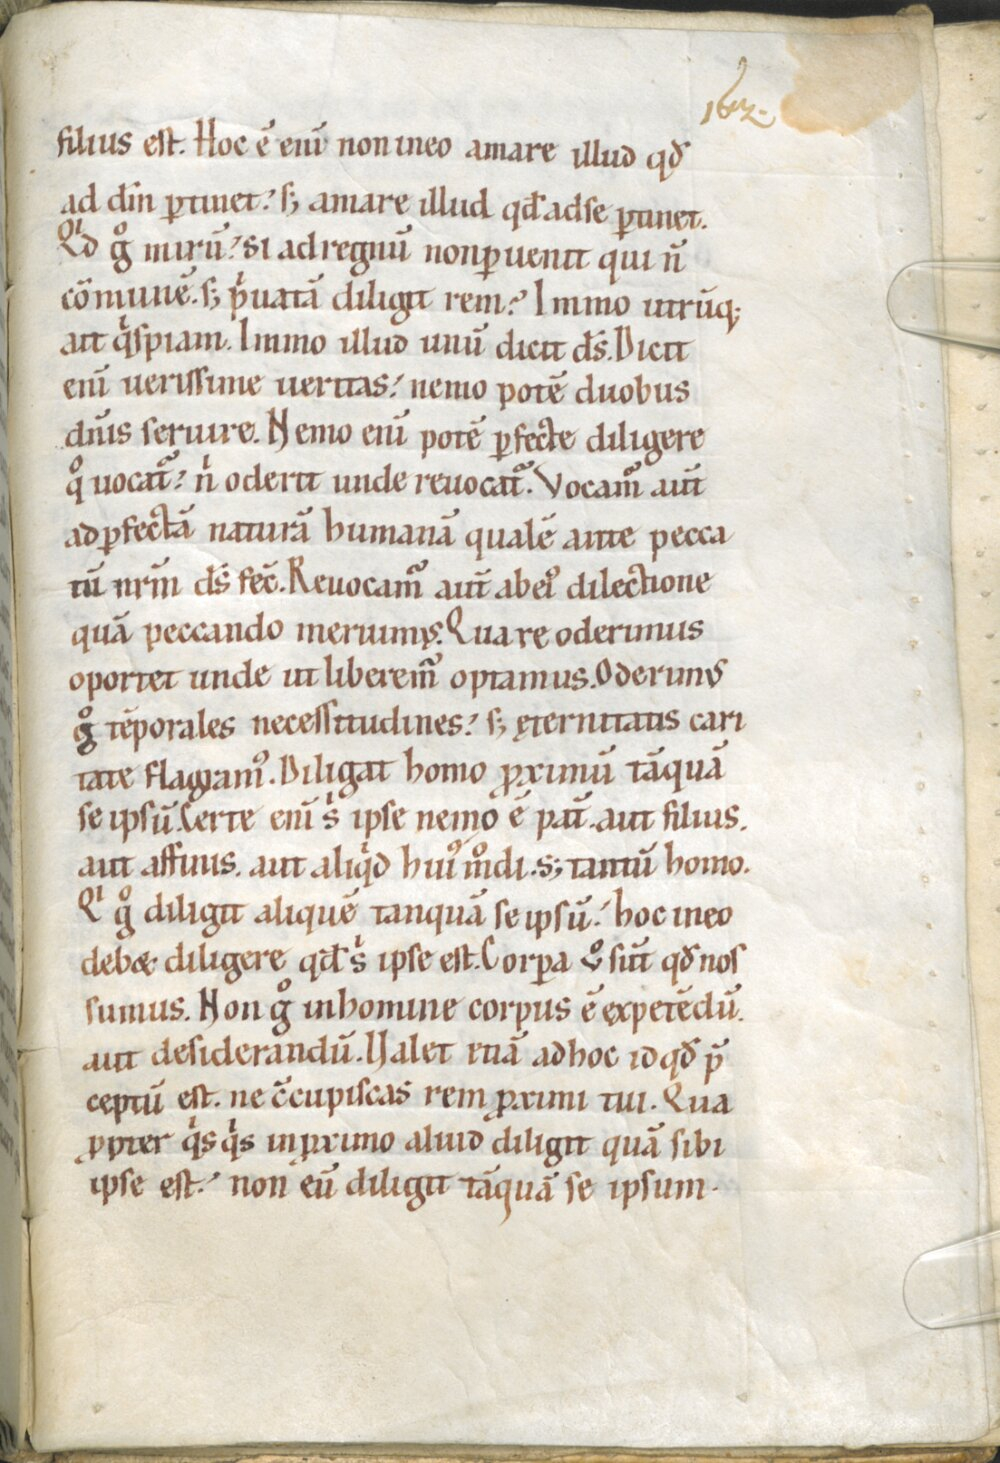 162.
filius est. Hoc ē enī non in eo amare illud qđ
ad dn̄m ꝑtinet? sꝫ amare illud qđ ad se ꝑtinet.
Qͥd gͦ mirū? si ad regnū non ꝑuenit qui n̄
cōmunē. sꝫ pͥuatā diligit rem? Immo utrūqꝫ
ait qͥspiam. Immo illud unū dicit ds̄. Dicit
enī uerissime ueritas? nemo potē duobus
dn̄is seruire. Nemo enī potē ꝑfecte diligere
qͦ uocat᷑? nͥ oderit unde reuocat᷑. Vocam᷑ aut̄
ad ꝑfectā naturā humanā qualē ante pecca
tū nrm̄ ds̄ fec̄. Reuocam᷑ aut̄ ab eiꝰ dilectione
quā peccando meruimꝰ. Quare oderimus
oportet unde ut liberem᷑ optamus. Oderimꝰ
gͦ tēporales necessitudines? sꝫ ęternitatis cari
tate flagramꝰ. Diligat homo ꝓximū tāquā
se ipsū. Certe enī sͥ ipse nemo ē pat̄. aut filius.
aut affinis. aut aliqͥd huiꝰ mͦdi. sꝫ tantū homo.
Qͥ gͦ diligit aliquē tanquā se ipsū? hoc in eo
debet diligere qđ sͥ ipse est. Corꝑa uͦ n̄ sūt qđ nos
sumus. Non gͦ in homine corpus ē expetēdū.
aut desiderandū. Ualet etiā ad hoc id qđ p̄
ceptū est. ne c̄cupiscas rem ꝓximi tui. Qua
ꝓpter qͥsqͥs in ꝓximo aliud diligit quā sibi
ipse est? non eū diligit tāquā se ipsum.